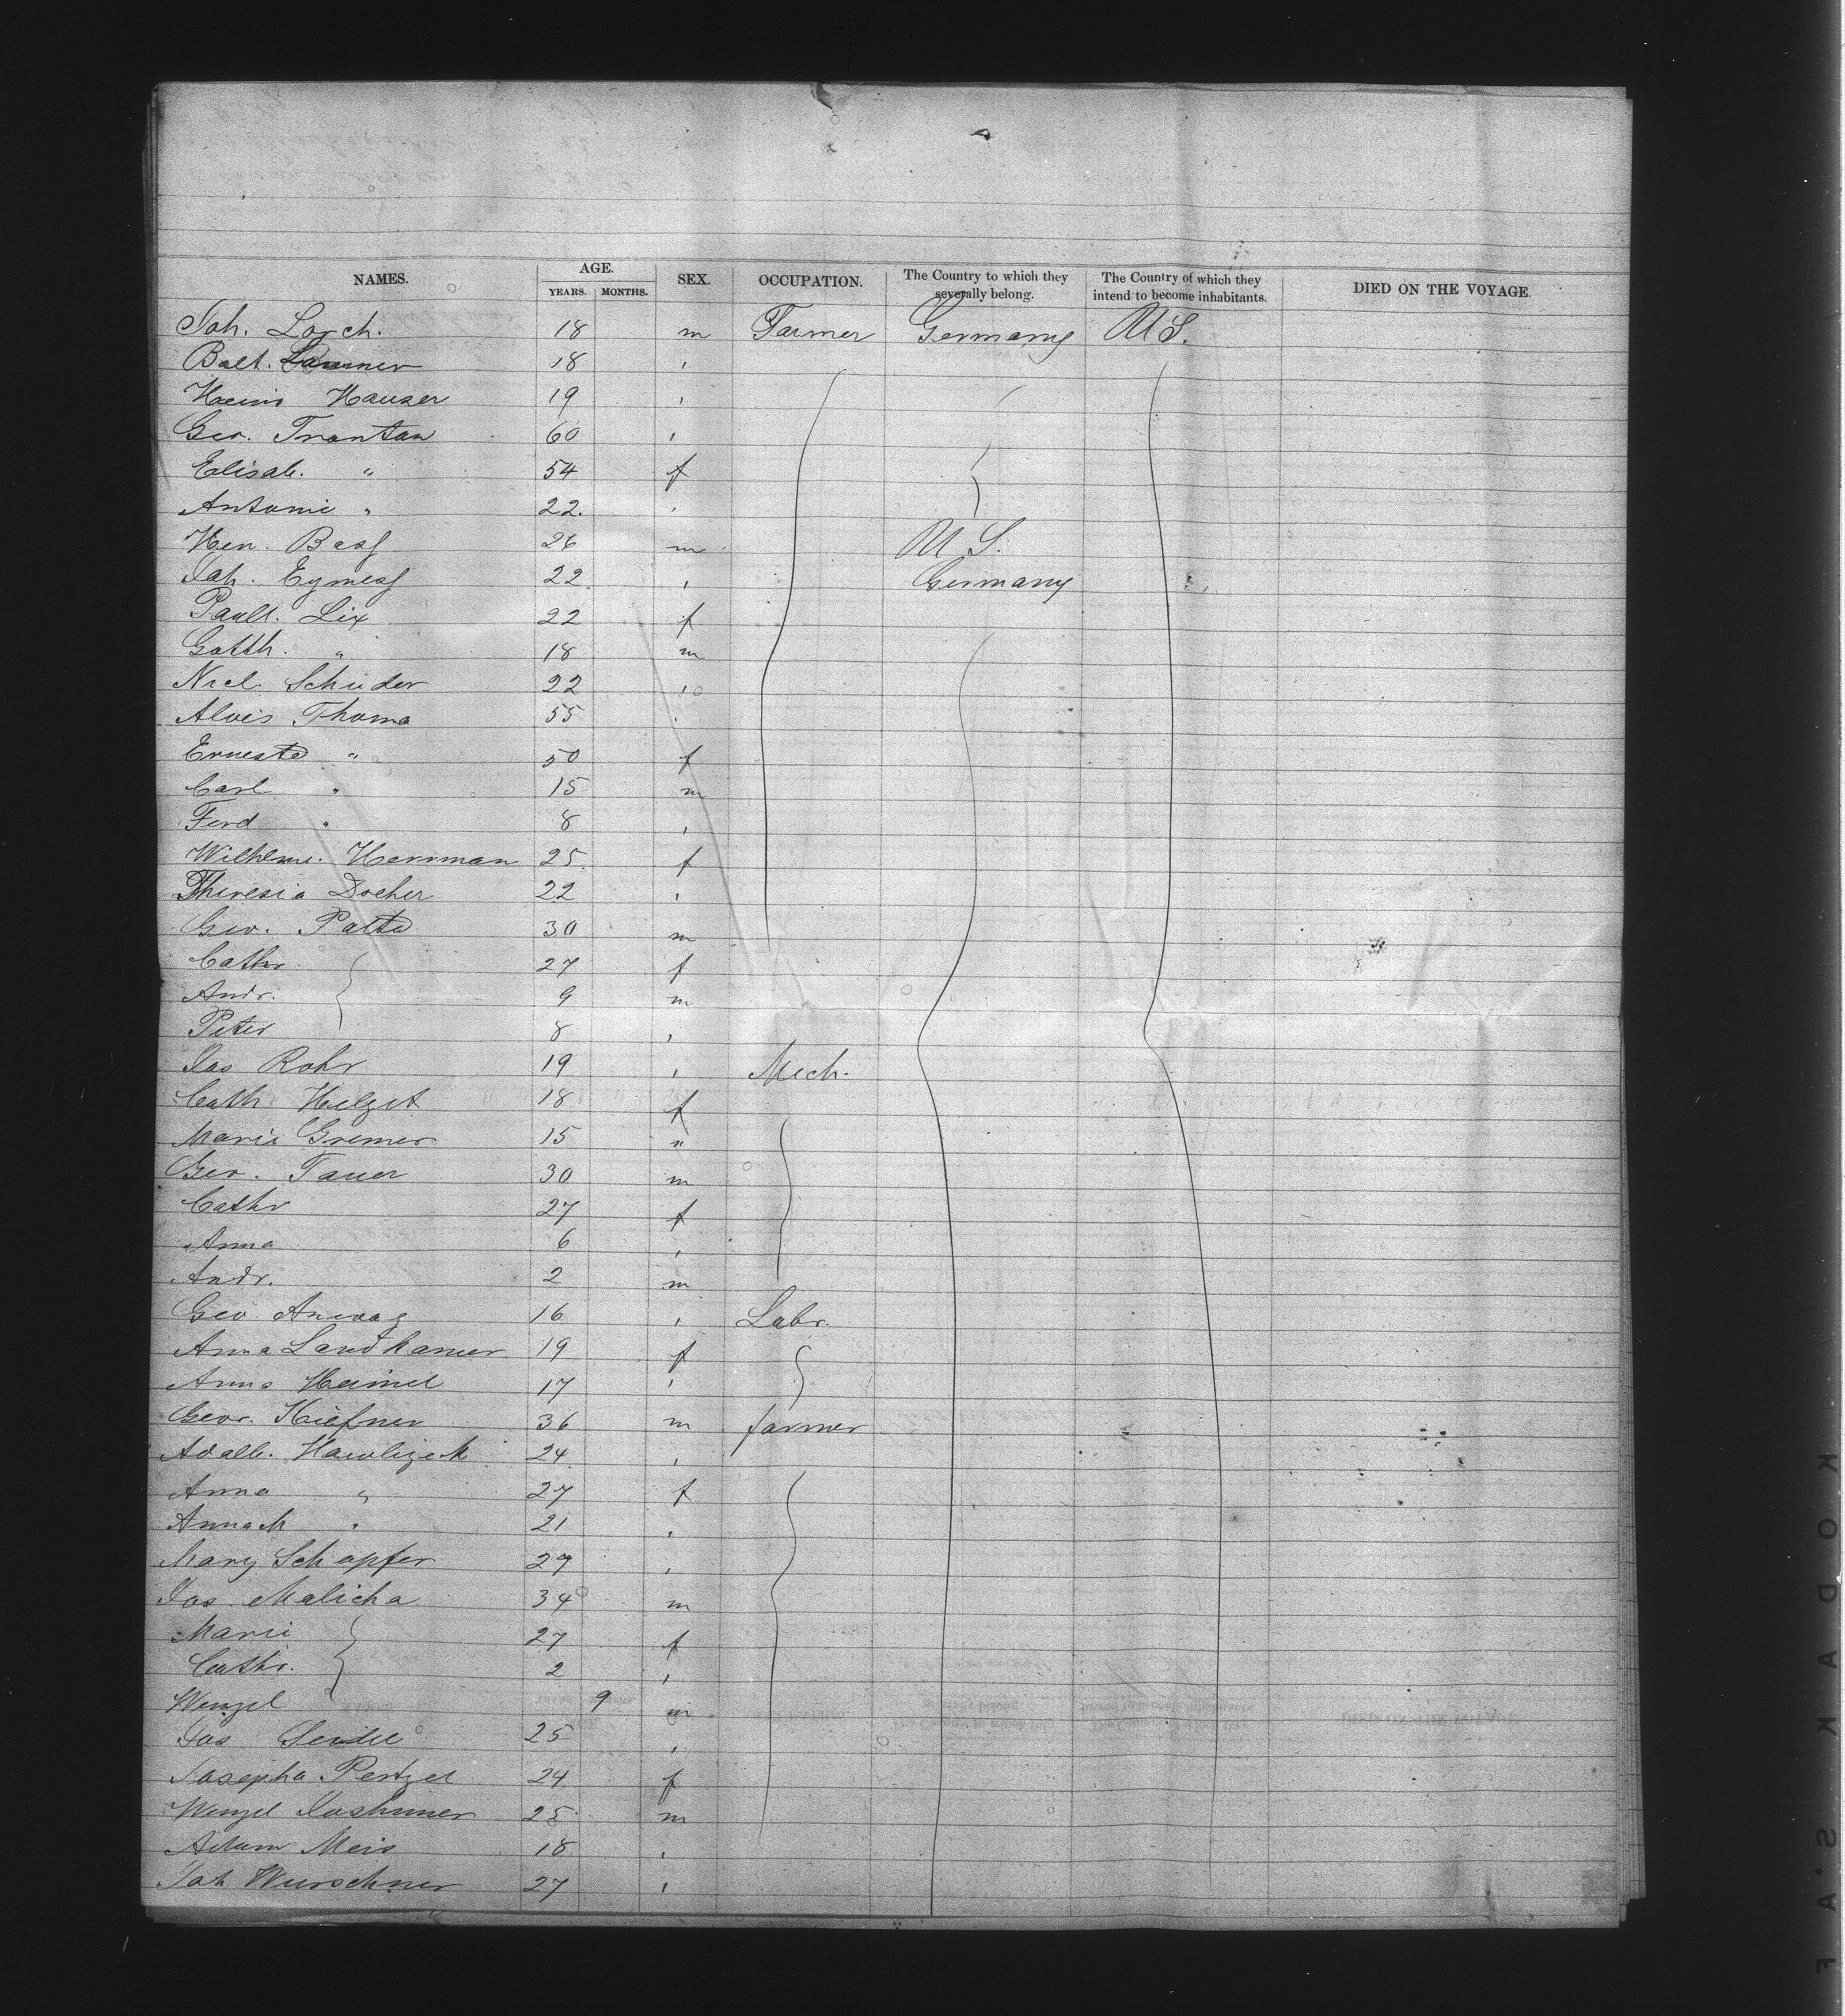 NAMES. AGE. YEARS. MONTHS. SEX. OCCUPATION. The Country to which they severally belong. The Country of which they intend to become inhabitants. DIED ON THE VOYAGE.
Joh. Lorch. 18 m Farmer Germany U S.
Balt. 18 "
Hauser 19 "
Geo. Trantan 60 "
Elisab. " 54 f
Antonie " 22. "
Hen. Basf 26 m U S.
Joh. Eymesf 22 " Germany
Paull. Lix 22 f
Gotth. " 18 m
Nicl. Schuder 22 "
Alois Thoma 55 "
Ernesta " 50 f
Carl " 15 m
Ferd " 8 "
Wilhelmi. Herrman 25 f
Theresia Docher 22 "
Geo. Palta 30 m
Cathr. 27 f
Andr. 9 m
Peter 8 "
Jos Rohr 19 " Mech.
Cath. Helget 18 f
Marie Gremer 15 "
Geo. Tauer 30 m
Cathr 27 f
Anna 6 "
Andr. 2 m
Geo. 16 " Labr.
Anna Landkamer 19 f
Anna Heimel 17 "
Geor. Kiefner 36 m farmer
Adalb. Hawlizek 24 "
Anna " 27 f
Anna M " 21 "
Mary Schopfer 27 "
Jos. Malicha 34 m
Marie 27 f
Cathr. 2 "
Wenzel 9 m
Jos Seidel 25 "
Josepha Pertzel 24 f
Wenzel 25 m
Adam Meis 18 "
Joh Wurschner 27 "
KODAK S.A.F